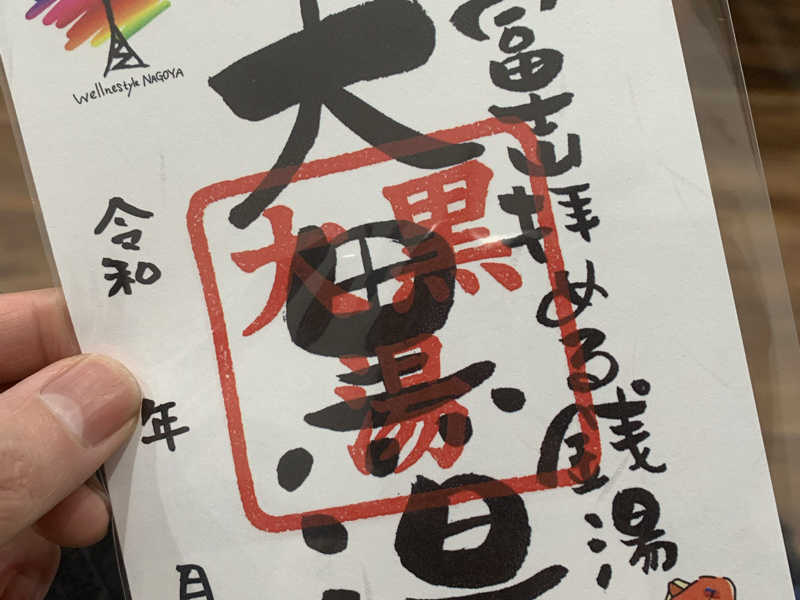 Wellnestyle NAGOYA
富士山拝める銭湯
大黒湯
大黒湯
令和
年
月